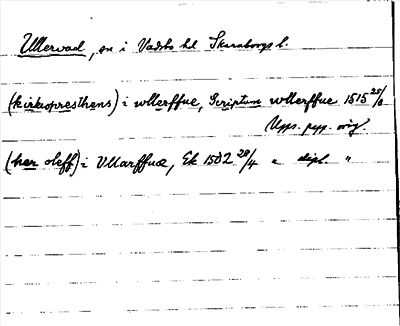 Ullervad, sn i Vadsbo hd Skaraborgs l.
(kirkopresthens) i wllerffue, Scriptum wllerffue 1515 25/8
Upps. papp. orig.
(her oleff) i Vllarffuæ, Ek 1502 28/4 " dipl. "